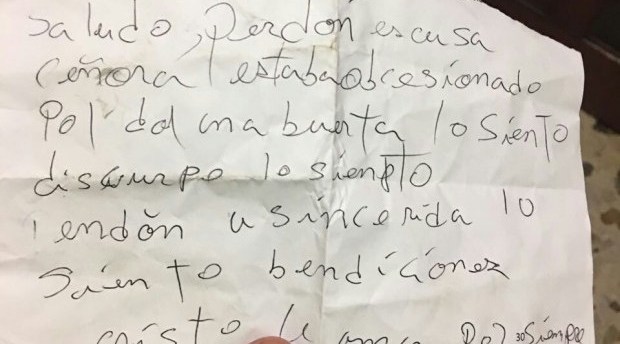 saludo, perdón escusa
ceñora estaba obcesionado
pol dal una buerta lo siento
discurpo lo siempto
endón u sincerida lo
siento bendiciones
cristo le ama Pol siempre